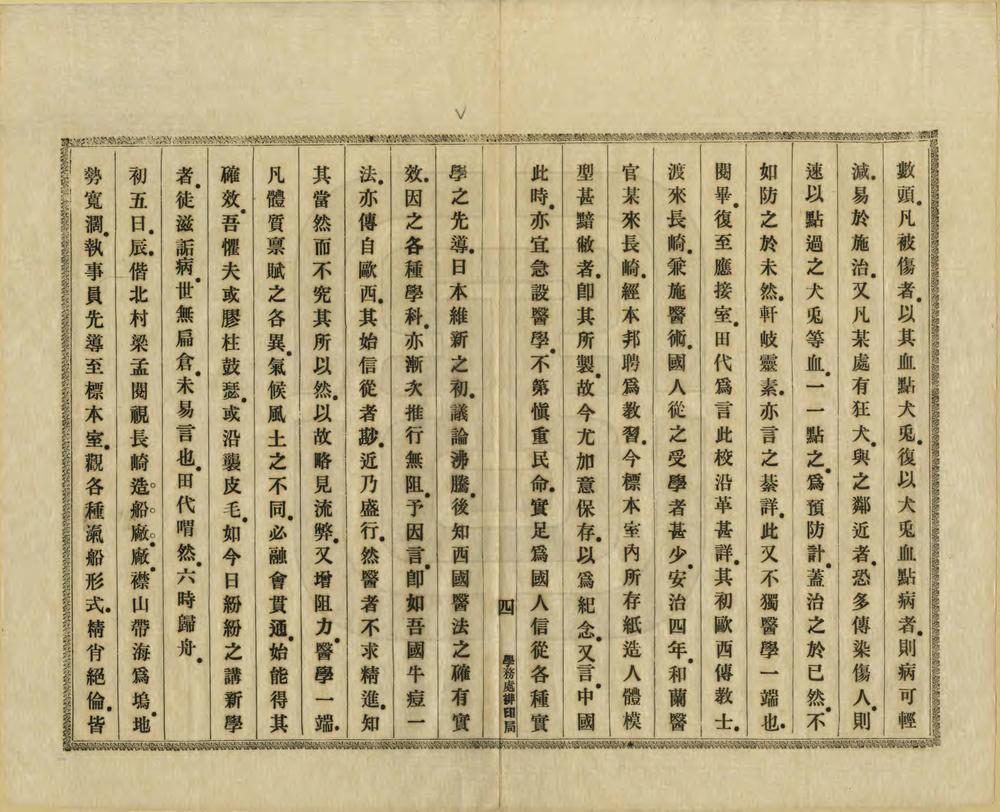 數頭。凡被傷者。以其血點犬兎。復以犬兎血點病者。則病可輕
減。易於施治。又凡某處有狂犬。與之鄰近者。恐多傳染傷人。則
速以點過之犬兎等血。一一點之。爲預防計。蓋治之於已然。不
如防之於未然。軒岐靈素。亦言之綦詳。此又不獨醫學一端也。
閱畢。復至應接室。田代爲言此校沿革甚詳。其初歐西傳敎士。
渡來長崎。兼施醫術。國人從之受學者甚少。安治四年。和蘭醫
官某來長崎。經本邦聘爲敎習。今標本室內所存紙造人體模
型甚黯敝者。卽其所製。故今尤加意保存。以爲紀念。又言。中國
此時。亦宜急設醫學。不第愼重民命。實足爲國人信從各種實
四
學務處排印局
學之先導。日本維新之初。議論沸騰。後知西國醫法之確有實
效。因之各種學科。亦漸次推行無阻。予因言。卽如吾國牛痘一
法。亦傳自歐西。其始信從者尠。近乃盛行。然醫者不求精進。知
其當然而不究其所以然。以故略見流弊。又增阻力。醫學一端。
凡體質禀賦之各異。氣候風土之不同。必融會貫通。始能得其
確效。吾懼夫或膠柱鼓瑟。或沿襲皮毛。如今日紛紛之講新學
者。徒滋詬病。世無扁倉。未易言也。田代喟然。六時歸舟。
初五日。辰。偕北村梁孟閱視長崎造船廠。廠襟山帶海爲塢。地
勢寬濶。執事員先導至標本室。觀各種滊船形式。精肖絕倫。皆